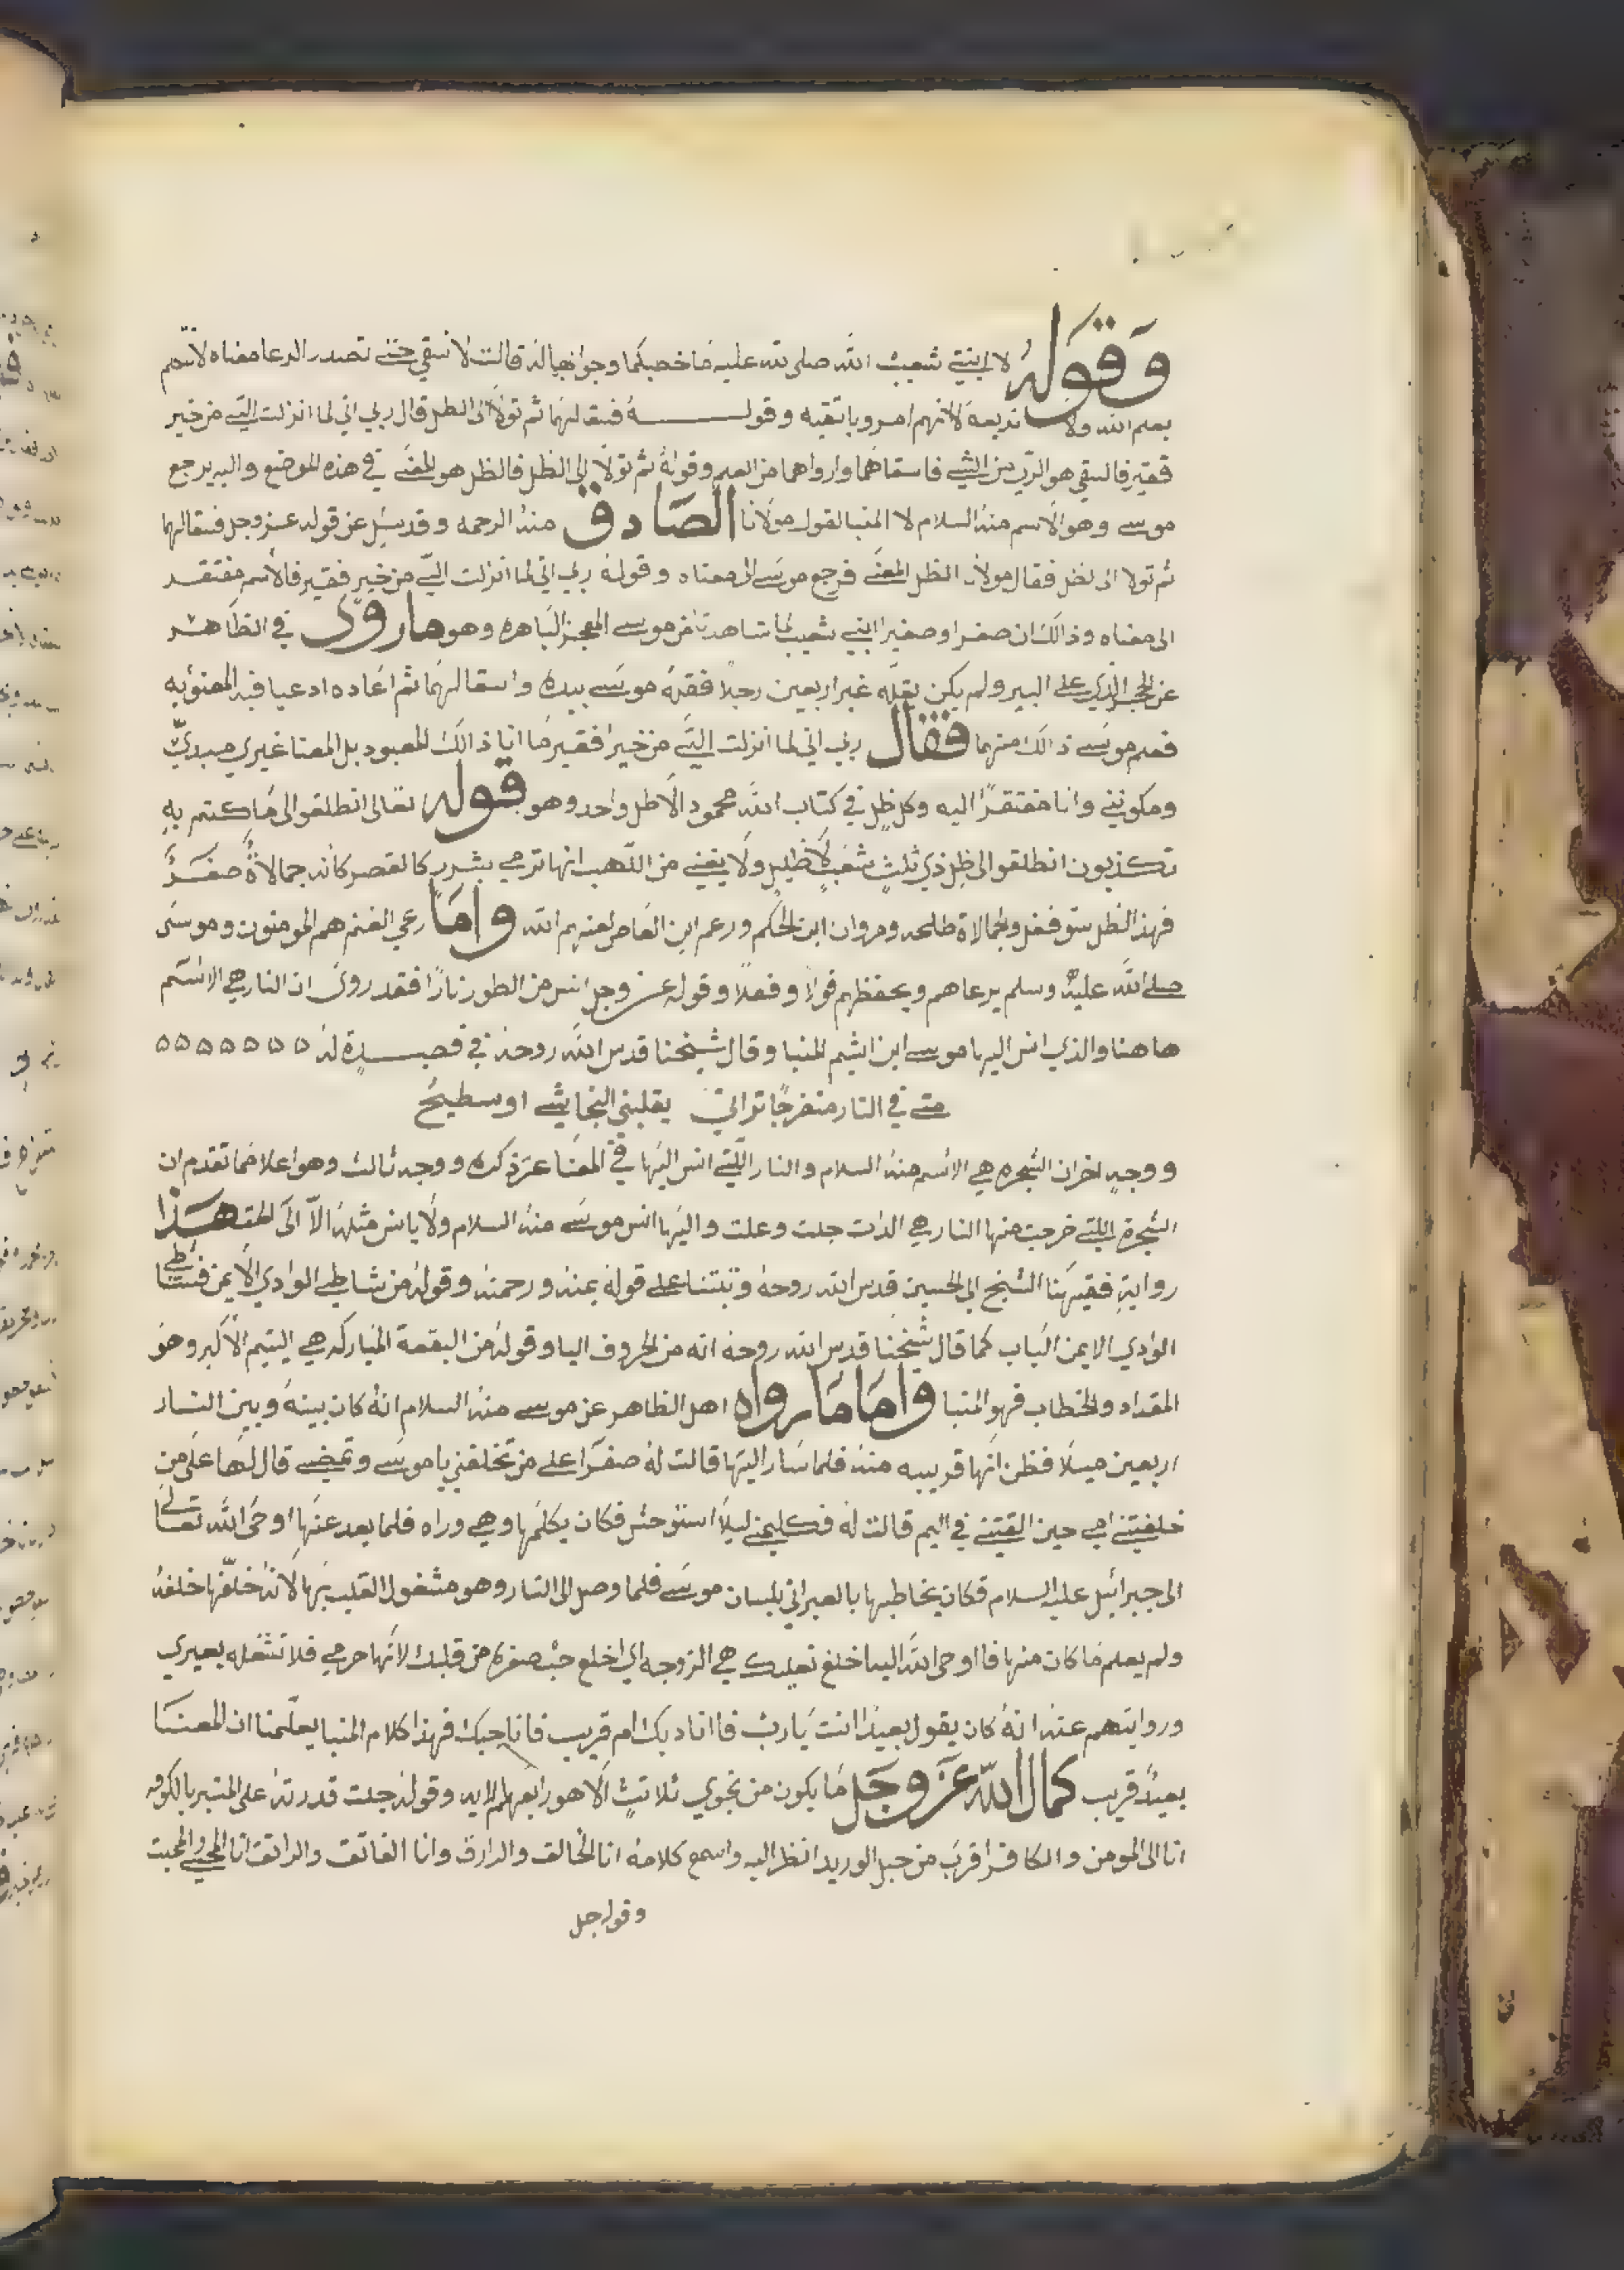 وَقَوَلهُ لابنتي شعيب الله صلى لله عليه ما خصبكما وجوابهما له قالت لا نسقي حتى تصدر الرعا معناه لا نسم
بعلم الله ولا نديعه لانهم امرو باتقيه وقولـــه فسقا لهما ثم تولا الى الظل قال ربي اني لما انزلت الي من خير
فقير فالسقي هو الري من الشي فاسقاهما وارواهما من العلم وقوله ثم تولا الى الظل فالظل هو المعنى في هذه الموضع واليه يرجع
موسى وهو الاسم منه السلام لا المتبا لقول مولانا الصادق منه الرحمه وقد سئل عن قوله عز وجل فسقا لهما
ثم تولا الى لظل فقال مولانا الظل المعنى فرجع موسى الى معناه وقوله ربي اني لما انزلت الي من خير فقير فالاسم مفتقر
الى معناه وذالك ان صفرا وصفيرا ابنتي شعيب لما شاهدتا من موسى المعجز الباهره وهو ما روى في الظاهر
عن الحجر الذي على البير ولم يكن يقله غير اربعين رجلا فقله موسى بيده واسقا لهما ثم اعاده ادعيا فيه المعنويه
فعلم موسى ذالك منهما فقال ربي اني لما انزلت الي من خير افقير ما انا ذالك المعبود بل المعنا غيري مبدي
ومكونني وانا مفتقرا اليه وكل ظل في كتاب الله محمود الا ظل واحد وهو قوله تعالى انطلقو الى ما كنتم به
تكذبون انطلقو الى ظل ذي ثلث شعب لا ظليل ولا يغني من اللهب انها ترمي بشرر كالقصر كانه جمالاة صفر
فهذ الظل ستوفغل والجمالاة طلحه ومروان ابن الحكم وزعم ابن العاص لعنهم الله واما رعي الغنم هم المومنون وموسى
صلى الله عليه وسلم يرعاهم ويحفظهم قولا وفعلا وقوله عز وجل انس من الطور نارا فقد روى ان النار هي الاسم
هاهنا والذي انس اليها موسى ابن ايشم المنبا وقال شيخنا قدس الله روحه في قصيدة له ه ه ه ه ه ه ه
متى في النار منفرجا تراني يقلبني النجاشي او سطيح
ووجه اخر ان الشجره هي الاسم منه السلام والنار اللتي انس اليها في المعنا عز ذكره ووجه ثالث وهو اعلا مما تقدم ان
الشجرة اللتي خرجت منها النار هي الذات جلت وعلت واليها انس موسى منه السلام ولا يانس مثله الا الى الحق هذا
رواية فقيهنا الشيخ ابي الحسين قدس الله روحه وثبتنا على قوله بمنه ورحمته وقوله من شاطي الوادي الايمن فشاطي
الوادي الايمن الباب كما قال شيخنا قدس الله روحه انه من الحروف اليا وقوله من البقعة المباركه هي اليتيم الاكبر وهو
المقداد والخطاب فهو المنبا واما ما رواه اهل الظاهر عن موسى منه السلام انه كان بينه وبين النار
اربعين ميلا فظن انها قريبه منه فلما سار اليها قالت له صفرا على من تخلفني يا موسى وتمضي قال لها على من
خلفتني امي حين القتني في اليم قالت له فكليمني ليلا استوحش فكان يكلمها وهي وراه فلما بعد عنها اوحى الله تعالى
الى جبرائيل عليه السلام فكان يخاطبها بالعبراني بلسان موسى فلما وصل الى النار وهو مشغول القلب بها لانه خلفها خلفه
ولم يعلم ما كان منها فااوحى الله اليه اخلع نعليك هي الزوجه اي اخلع حب صفره من قلبك لانها حرمي فلا تشغله بغيري
وروايتهم عنه انه كان يقول بعيدا انت يا رب فااناديك ام قريب فاناجيك فهذا كلام المنبا يعلمنا ان المعنا
بعيدا قريب كما قال الله عز وجل ما يكون من نجوي ثلاثت الا هو رابعهم الايه وقوله جلت قدرته على المنبر بالكوفه
انا الى المومن والكافر اقرب من حبل الوريد انظر اليه واسمع كلامه انا الخالق والرازق وانا الفاتق والراتق انا المحيي والمميت
وقوله جل